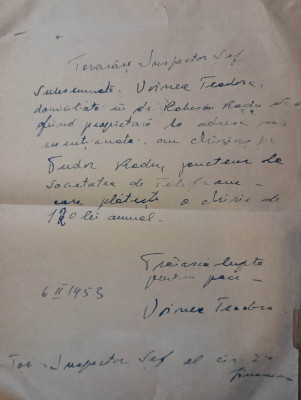 Tovarășe Inspector Șef
Subsemnata, Voinea Teodora,
domiciliată în str.
fiind proprietară la adresa
menționată, am chiriaș pe
Tudor Radu, la
Societatea de Telefoane –
care plătește o chirie de
120 lei anual.
Trăiască lupta
pentru pace –
6 II 1953
Voinea Teodora
Tov. Inspector Șef al circ. 2